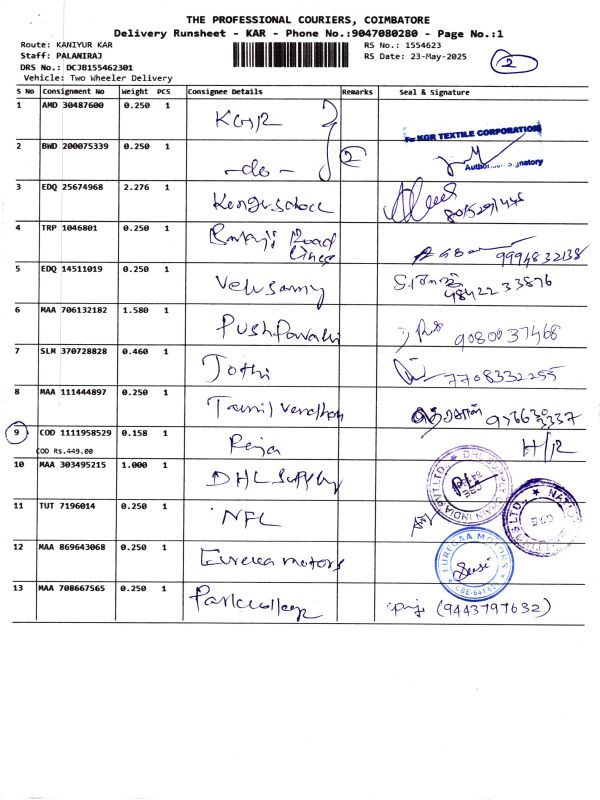 THE PROFESSIONAL COURIERS, COIMBATORE
Delivery Runsheet - KAR - Phone No.:9047080280 - Page No.:1
Route: KANIYUR KAR
Staff: PALANIRAJ
DRS No.: DCJB155462301
Vehicle: Two Wheeler Delivery
RS No.: 1554623
RS Date: 23-May-2025
2
S No Consignment No Weight PCS Consignee Details Remarks Seal & Signature
1 AMD 30487600 0.250 1 KGR
For KGR TEXTILE CORPORATION
Authorised Signatory
2 BWD 200075339 0.250 1 -do- 2
3 EDQ 25674968 2.276 1
4 TRP 1046801 0.250 1 Balaji Road Lines 9994832138
5 EDQ 14511019 0.250 1 Velusamy 98422 33876
6 MAA 706132182 1.580 1 Pushpavalli 9080037468
7 SLM 370728828 0.460 1 Jothi 7708332255
8 MAA 111444897 0.250 1
9 COD 1111958529 0.158 1 Raja H/R
COD RS.449.00
10 MAA 303495215 1.000 1 DHL Supply
DHL SUPPLY CHAIN INDIA PVT LTD.
11 TUT 7196014 0.250 1 NFL
12 MAA 869643068 0.250 1 Eureca motors
EUREGAA MOTORS
13 MAA 708667565 0.250 1 (9443797632)